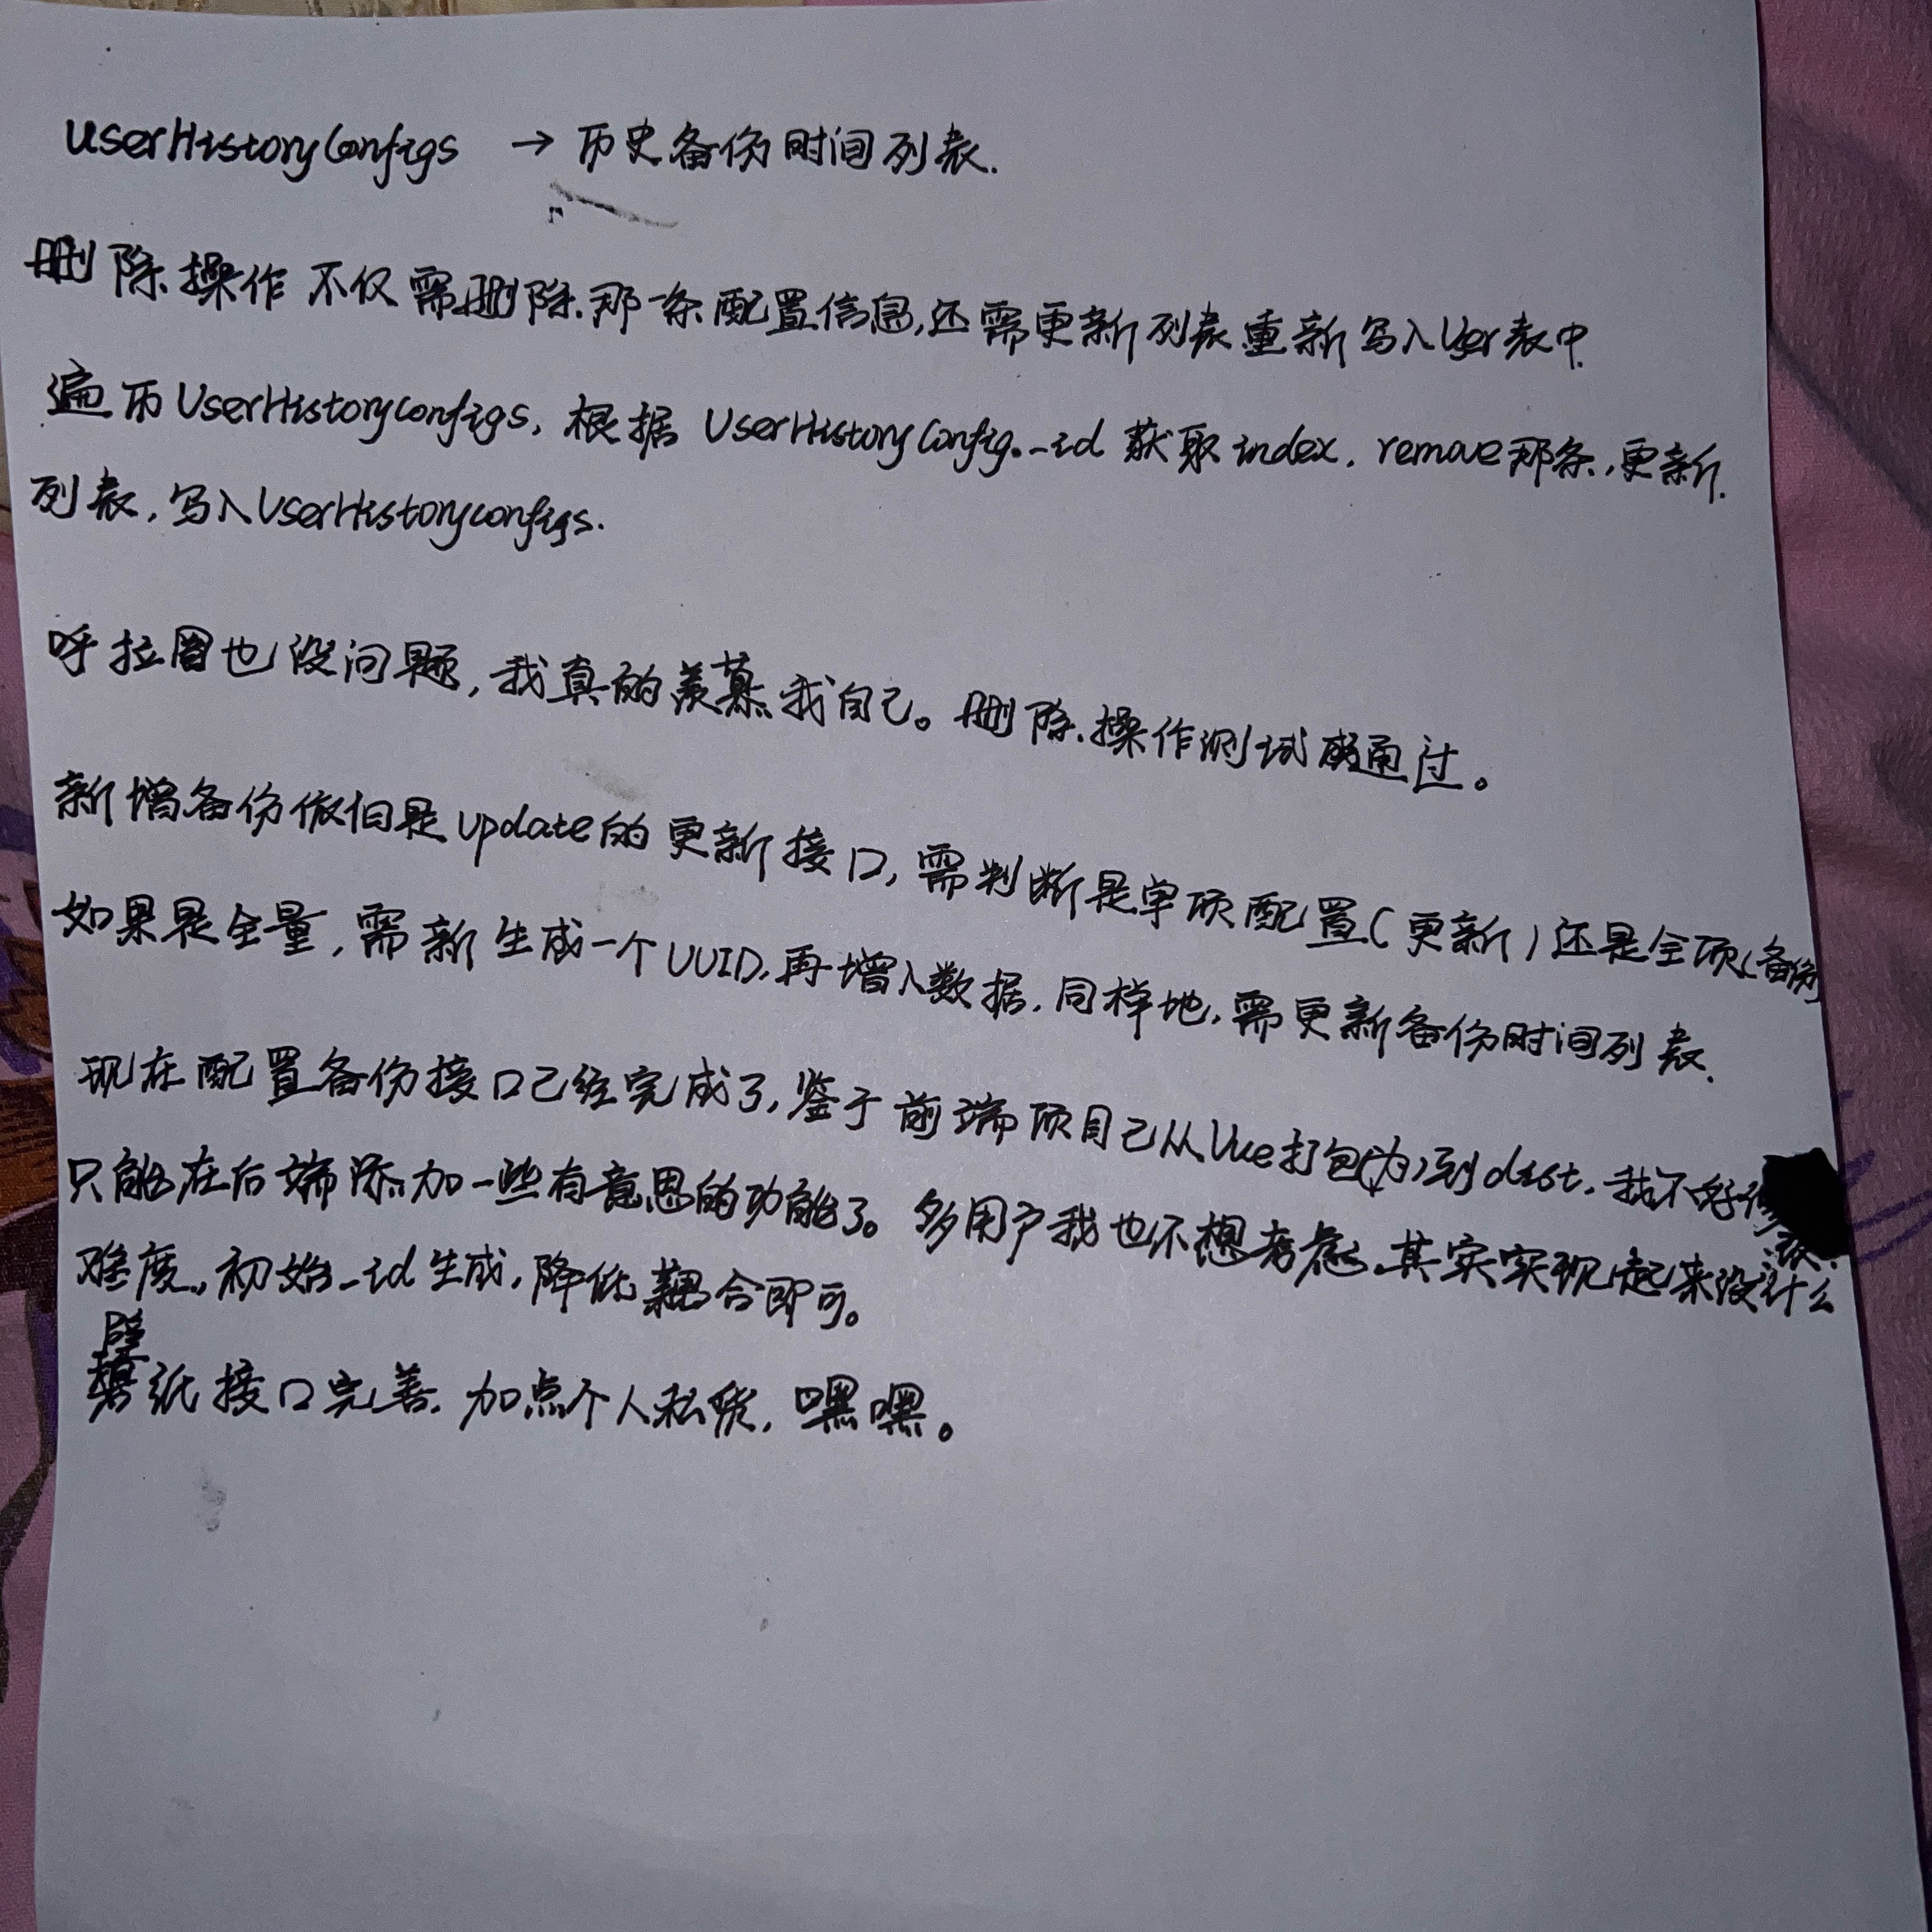 UserHistoryConfigs → 历史备份时间列表.
删除操作不仅需删除那一条配置信息,还需更新列表重新写入User表中.
遍历UserHistoryConfigs, 根据 UserHistoryConfig._id 获取index, remove那条,更新.
列表,写入UserHistoryConfigs.
呼拉圈也没问题,我真的羡慕我自己。删除操作测试通过。
新增备份依旧是update的更新接口,需判断是单项配置(更新)还是全项(备份)
如果是全量,需新生成一个UUID,再增入数据,同样地,需更新备份时间列表.
现在配置备份接口已经完成了,鉴于前端项目已从Vue打包(为)到dist,我不好修
只能在后端添加一些有意思的功能了。多用户我也不想考虑,其实实现起来没什么
难度,初始_id生成,降低耦合即可。
壁
纸接口完善,加点个人私货,嘿嘿。